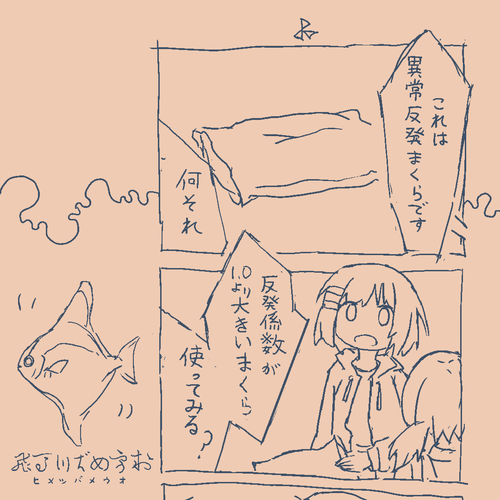 これは
異常反発まくらです
何それ
反発係数が
1.0より大きいまくら
使ってみる?
ヒメツバメウオ